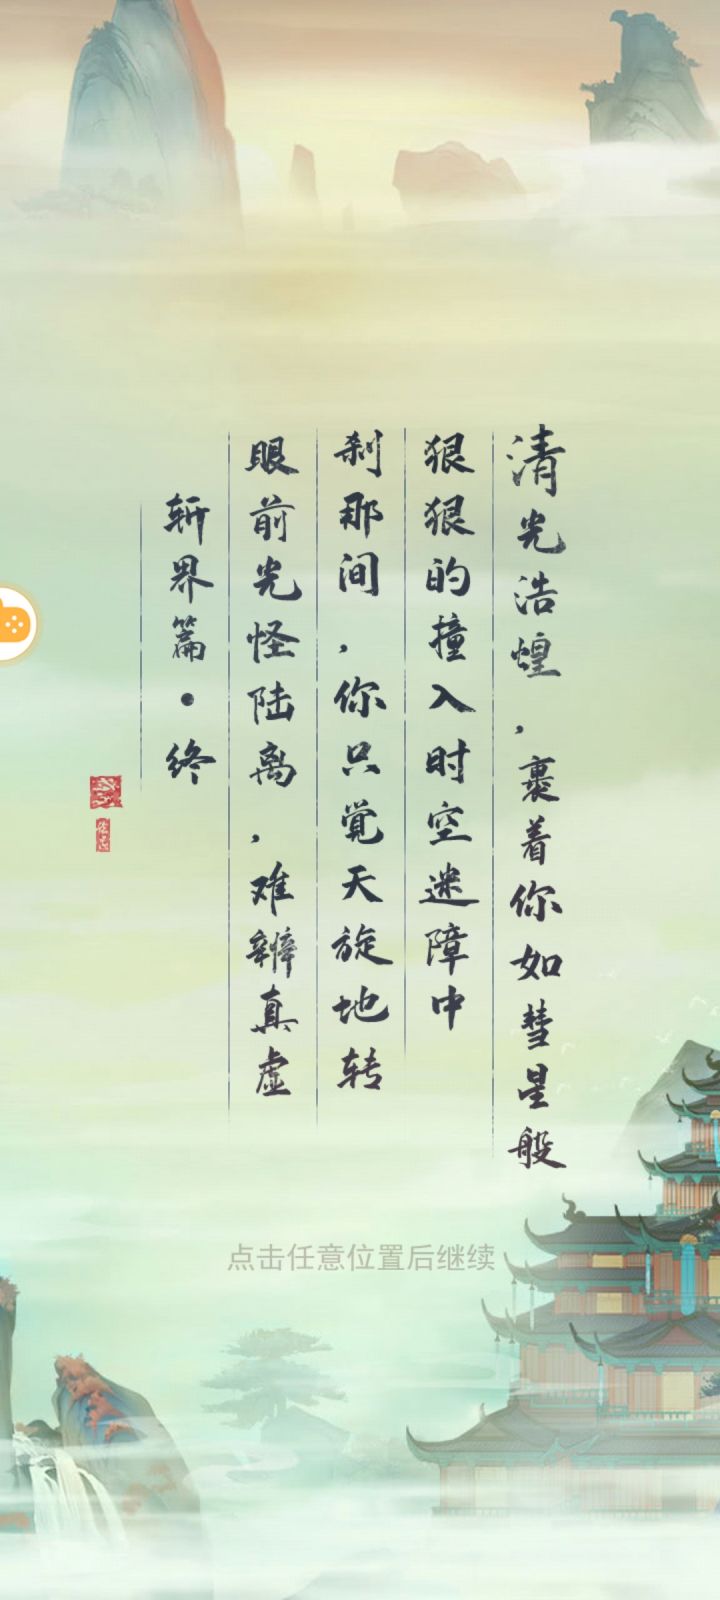 清光浩煌，裹着你如彗星般
狠狠的撞入时空迷障中
刹那间，你只觉天旋地转
眼前光怪陆离，难辨真虚
斩界篇·终
点击任意位置后继续